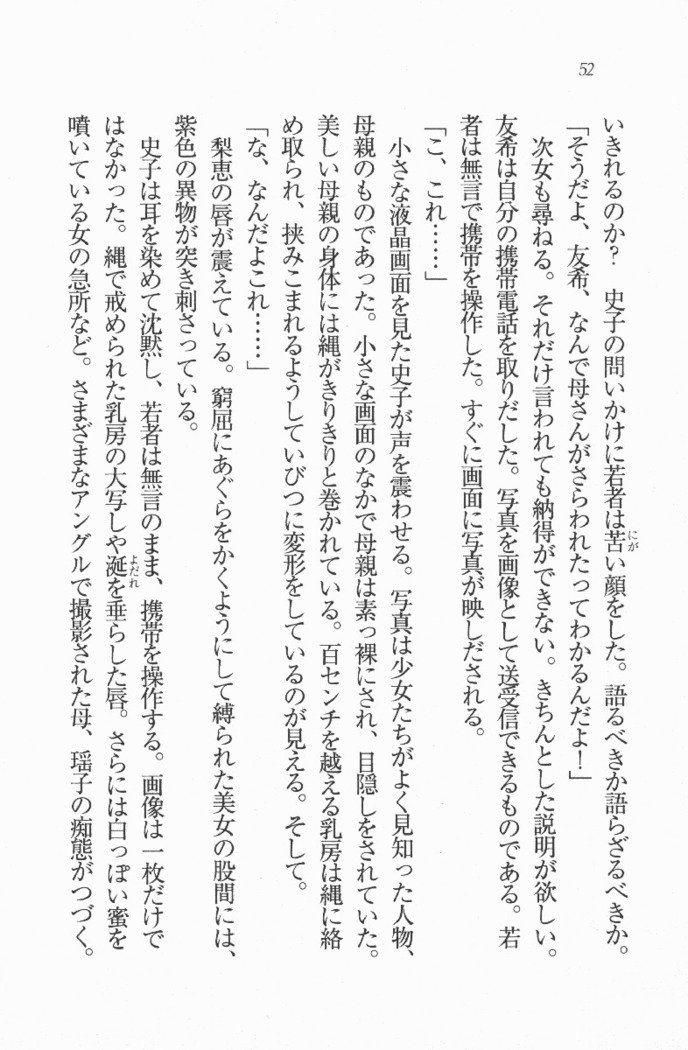 52
いきれるのか？　史子の問いかけに若者は苦い顔をした。語るべきか語らざるべきか。
「そうだよ、友希、なんで母さんがさらわれたってわかるんだよ！」
次女も尋ねる。それだけ言われても納得ができない。きちんとした説明が欲しい。
友希は自分の携帯電話を取りだした。写真を画像として送受信できるものである。若
者は無言で携帯を操作した。すぐに画面に写真が映しだされる。
「こ、これ……」
小さな液晶画面を見た史子が声を震わせる。写真は少女たちがよく見知った人物、
母親のものであった。小さな画面のなかで母親は素っ裸にされ、目隠しをされていた。
美しい母親の身体には縄がきりきりと巻かれている。百センチを越える乳房は縄に絡
め取られ、挟みこまれるようしていびつに変形をしているのが見える。そして。
「な、なんだよこれ……」
梨恵の唇が震えている。窮屈にあぐらをかくようにして縛られた美女の股間には、
紫色の異物が突き刺さっている。
史子は耳を染めて沈黙し、若者は無言のまま、携帯を操作する。画像は一枚だけで
はなかった。縄で戒められた乳房の大写しや涎を垂らした唇。さらには白っぽい蜜を
噴いている女の急所など。さまざまなアングルで撮影された母、瑶子の痴態がつづく。